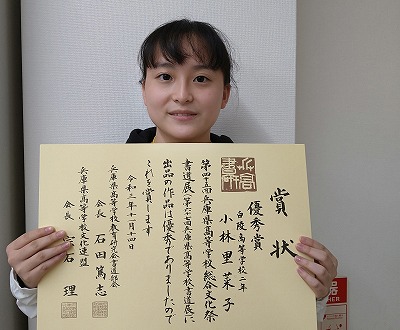 賞状
優秀賞
白陵高等学校二年
小林里菜子
第四十五回兵庫県高等学校総合文化祭
書道展(第六十七回兵庫県高等学校書道展)に
出品の作品は優秀でありましたので
これを賞します
令和三年十一月十四日
兵庫県高等学校教育研究会書道部会
会長 石田篤志
兵庫県高等学校文化連盟
会長 理
品
HER